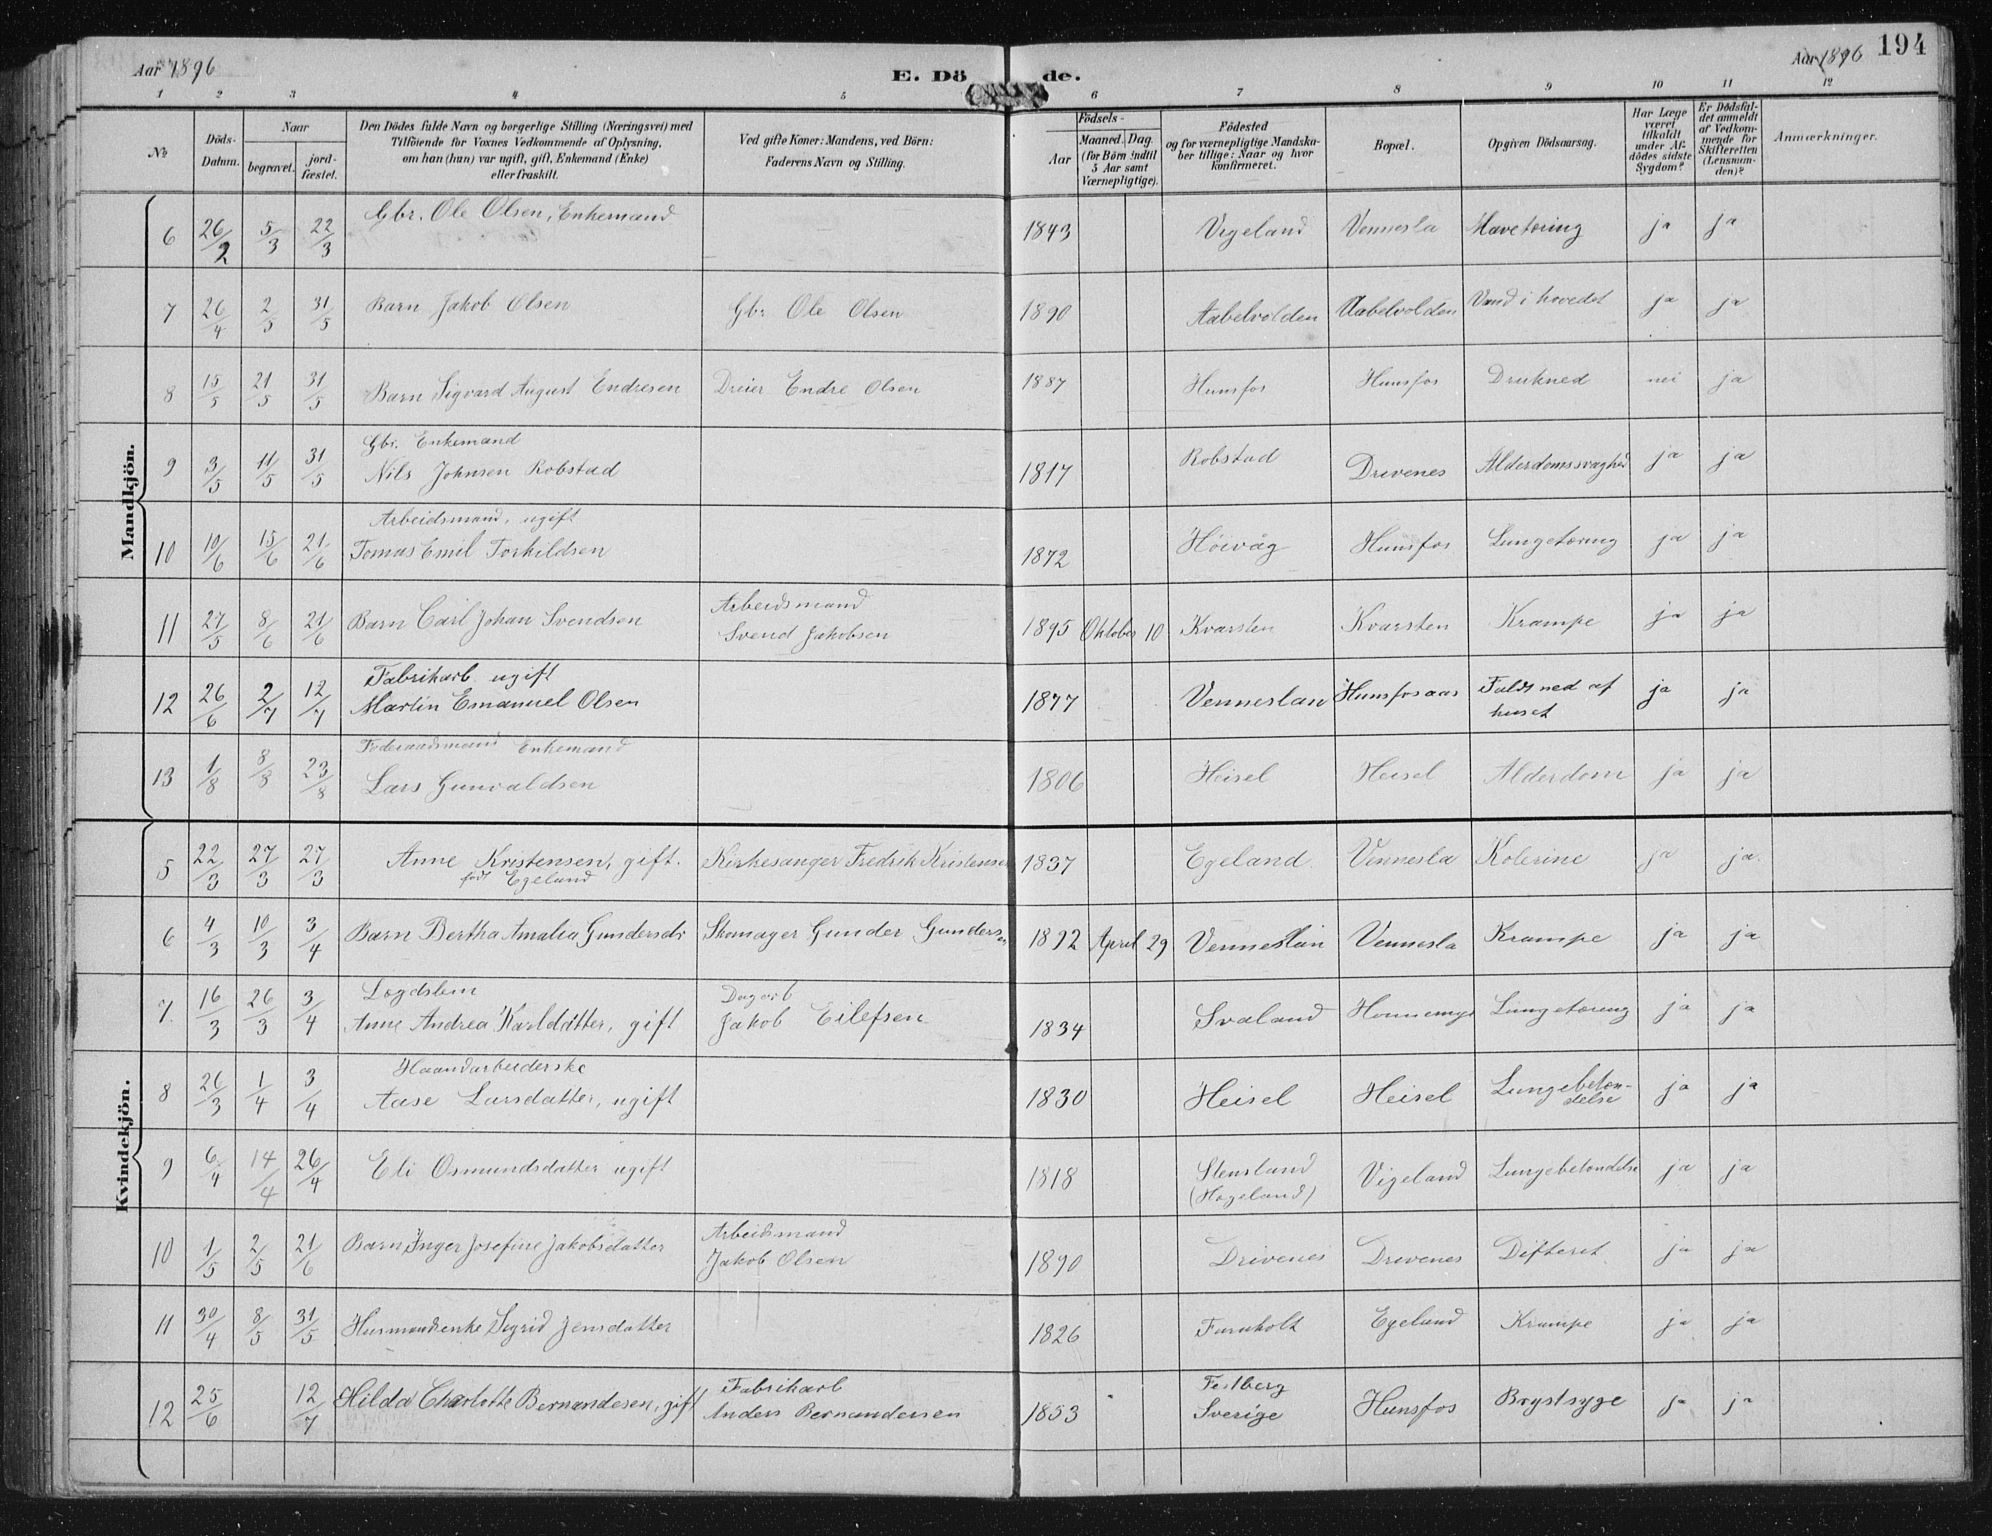 Aar 1896
E. Dö de.
Aar 1896
194
1 2 3 4 5 6 7 8 9 10 11 12
No
Döds-Datum.
Naar
begravet.
jord-fæstet.
Den Dödes fulde Navn og borgerlige Stilling (Næringsvei) med
Tilföiende for Voxnes Vedkommende af Oplysning,
om han (hun) var ugift, gift, Enkemand (Enke)
eller fraskilt.
Ved gifte Koner: Mandens, ved Börn:
Faderens Navn og Stilling.
Födsels-
Aar
Maaned. Dag.
(for Börn indtil
5 Aar samt
Værnepligtige).
Födested
og for værnepligtige Mandska-
ber tillige: Naar og hvor
konfirmeret.
Bopæl.
Opgiven Dödsaarsag.
Har Læge
været
tilkaldt
under Af-
dödes sidste
Sygdom?
Er Dödsfal-
det anmeldt
af Vedkom-
mende for
Skifteretten
(Lensman-
den)?
Anmærkninger.
Mandkjön.
6 26/2 5/3 22/3 Gbr. Ole Olsen, Enkemand 1843 Vigeland Vennesla Mavetæring ja ja
7 26/4 2/5 31/5 Barn Jakob Olsen Gbr. Ole Olsen 1890 Aabelvolden Aabelvolden Vand i hovedet ja ja
8 15/5 21/5 31/5 Barn Sigvard August Endresen Dreier Endre Olsen 1887 Hunsfos Hunsfos Drukned nei ja
Gbr. Enkemand
9 3/5 11/5 31/5 Nils Johnsen Robstad 1817 Robstad Drevenes Alderdomssvaghed ja ja
Arbeidsmand, ugift
10 10/6 15/6 21/6 Tomas Emil Torkildsen 1872 Höivåg Hunsfos Lungetæring ja ja
Arbeidsmand
11 27/5 8/6 21/6 Barn Carl Johan Svendsen Svend Jakobsen 1895 Oktober 10 Kvarsten Kvarsten Krampe ja ja
Fabrikarb ugift
12 26/6 2/7 12/7 Martin Emanuel Olsen 1877 Venneslan Hunsfosaas Faldt ned af
huset ja ja
Föderaadsmand Enkemand
13 1/8 8/8 23/8 Lars Gunvaldsen 1806 Heisel Heisel Alderdom ja ja
Kvindekjön.
5 22/3 27/3 27/3 Anne Kristensen, gift. Kirkesanger Fredrik Kristensen 1837 Egeland Vennesla Kolerine ja ja
født Egeland
6 4/3 10/3 3/4 Barn Bertha Amalia Gundersdr Skomager Gunder Gundersen 1892 April 29 Venneslan Vennesla Krampe ja ja
Lægdslem Dagarb
7 16/3 26/3 3/4 Anne Andrea Karldatter, gift Jakob Eilefsen 1834 Svaland Lungetæring ja ja
Haandarbeiderske
8 26/3 1/4 3/4 Aase Larsdatter, ugift 1830 Heisel Heisel Lungebeten-
delse ja ja
9 6/4 14/4 26/4 Eli Osmundsdatter ugift 1818 Stensland
(Hægeland) Vigeland Lungebetendelse ja ja
Arbeidsmand
10 1/5 2/5 21/6 Barn Inger Josefine Jakobsdatter Jakob Olsen 1890 Drivenes Drevenes Difteret ja ja
11 30/4 8/5 31/5 Husmandsenke Sigrid Jensdatter 1826 Furuholt Egeland Krampe ja ja
Fabrikarb Festberg
12 25/6 12/7 Hilda Charlotte Bernandesen, gift Anders Bernandersen 1853 Sverige Hunsfos Brystsyge ja ja